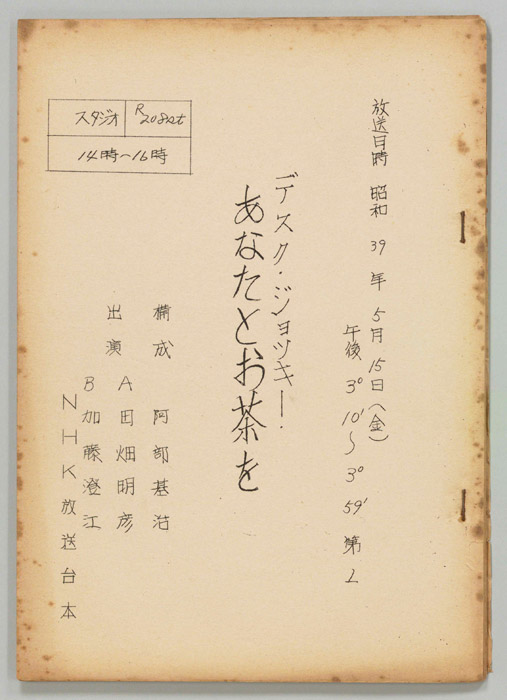 放送日時 昭和 39 年 5月 15日(金)
午後 3° 10' 〜 3° 59' 第 1
デスク・ジョッキー・
あなたとお茶を
スタジオ
14時〜16時
構成 阿部基治
出演 A 田畑明彦
B 加藤澄江
NHK放送台本